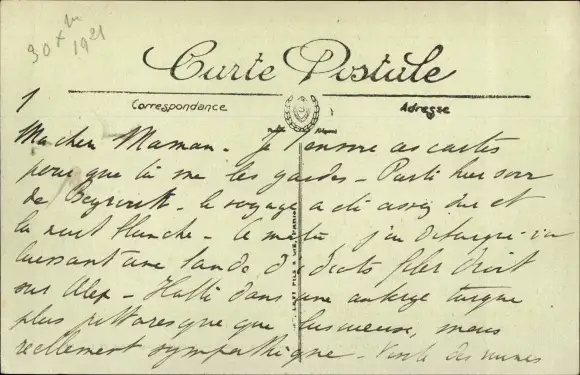 30 Xbre
1921
Carte Postale
Correspondance
Adresse
1
Ma chère Maman - Je t'envoie ces cartes
pour que tu me les gardes - Parti hier soir
de Beyrouth - le voyage a été assez dur et
la nuit blanche - ce matin j'ai débarqué ici
laissant une bande d' filer droit
sur Alep - Halte dans une auberge turque
plus pittoresque que luxueuse, mais
réellement sympathique - Visite des ruines
LEVY FILS & Cie, PARIS